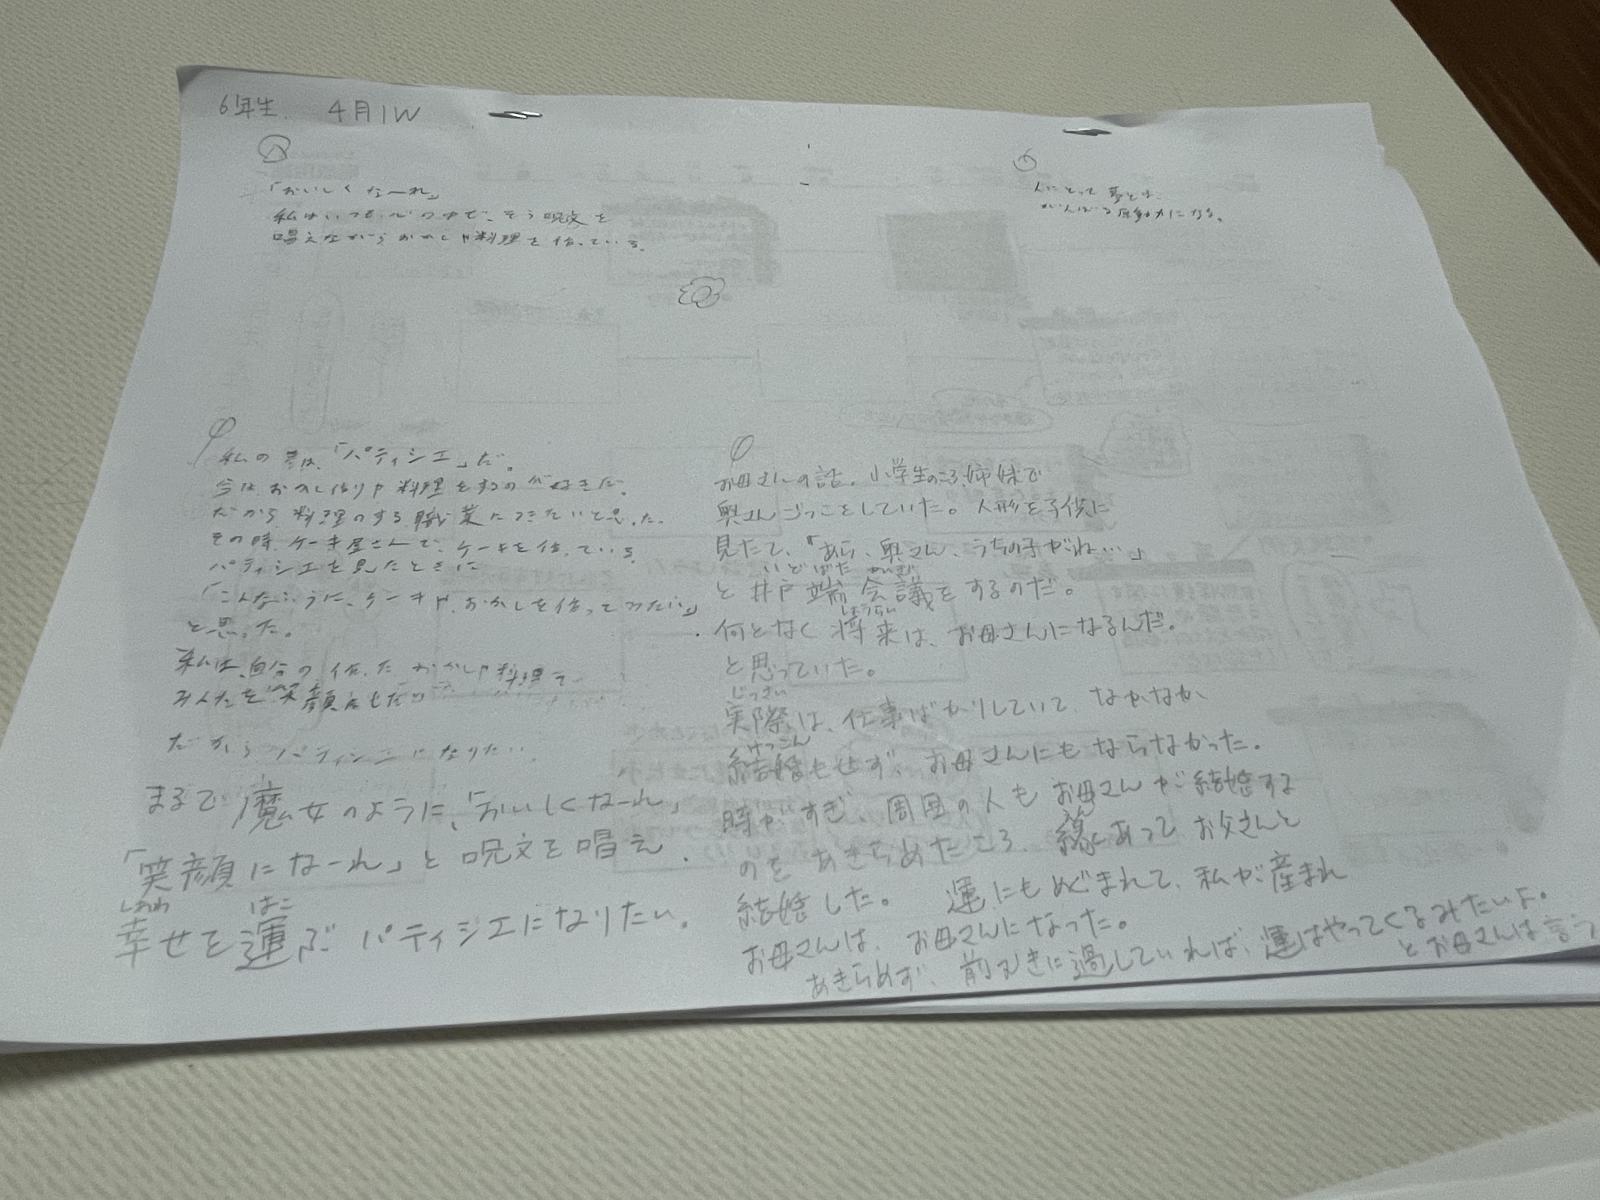 6年生 4月1W
「おいしくなーれ」
私はいつも心の中で、そう呪文を
唱えながらおかしや料理を作っている。
人にとって夢とは、
がんばる原動力になる。
私の夢は、「パティシエ」だ。
今は、おかし作りや料理をするのが好きだ。
だから料理のする職業につきたいと思った。
その時、ケーキ屋さんで、ケーキを作っている
パティシエを見たときに
「こんなふうに、ケーキや、おかしを作ってみたい」
と思った。
私は、自分の作ったおかしや料理で
みんなを笑顔にしたい
だからパティシエになりたい
まるで魔女のように、「おいしくなーれ」
「笑顔になーれ」と呪文を唱え、
しあわ はこ
幸せを運ぶパティシエになりたい。
お母さんの話。小学生のころ、姉妹で
奥さんごっこをしていた。人形を子供に
見たて、「あら、奥さん、うちの子がね…」
いどばた かいぎ
と井戸端会議をするのだ。
しょうらい
何となく将来は、お母さんになるんだ。
と思っていた。
じっさい
実際は、仕事ばかりしていて、なかなか
けっこん
結婚もせず、お母さんにもならなかった。
時がすぎ、周囲の人もお母さんが結婚する
えん
のをあきらめたころ、縁あってお父さんと
結婚した。 運にもめぐまれて、私が産まれ
お母さんは、お母さんになった。
あきらめず、前むきに過していれば、運はやってくるみたいよ。
とお母さんは言う